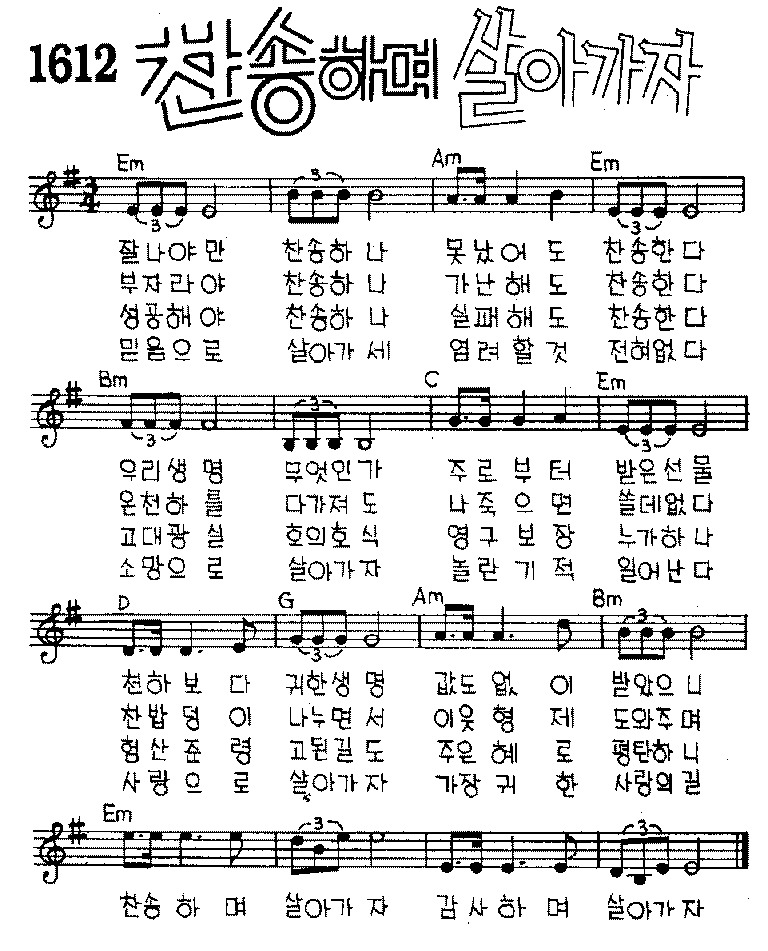 1612 찬송하며 살아가자
Em Am Em
3/4 3 3 3
잘나야만 찬송하나 못났어도 찬송한다
부자라야 찬송하나 가난해도 찬송한다
성공해야 찬송하나 실패해도 찬송한다
믿음으로 살아가세 염려할것 전혀없다
Bm C Em
3 3 3
우리생명 무엇인가 주로부터 받은선물
온천하를 다가져도 나죽으면 쓸데없다
고대광실 호의호식 영구보장 누가하나
소망으로 살아가자 놀란기적 일어난다
D G Am Bm
3 3
천하보다 귀한생명 값도없이 받았으니
찬밥덩이 나누면서 이웃형제 도와주며
험산준령 고된길도 주은혜로 평탄하니
사랑으로 살아가자 가장귀한 사랑의길
Em
3 3
찬송하며 살아가자 감사하며 살아가자